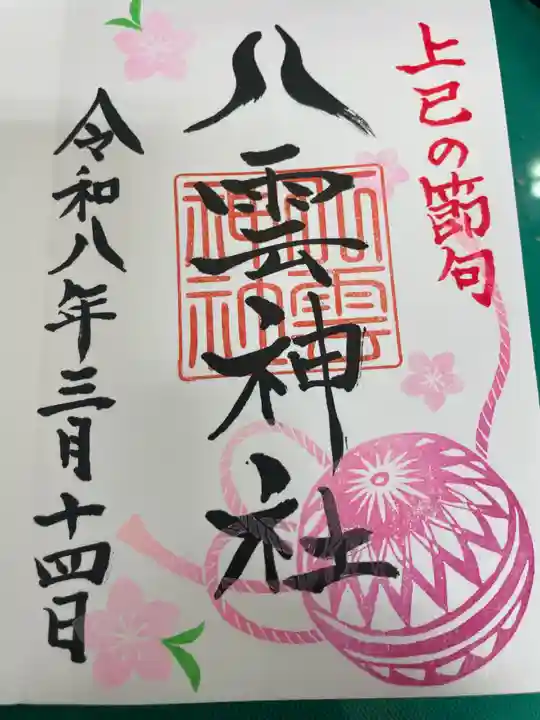 上巳の節句
八雲神社
八雲神社
令和八年三月十四日